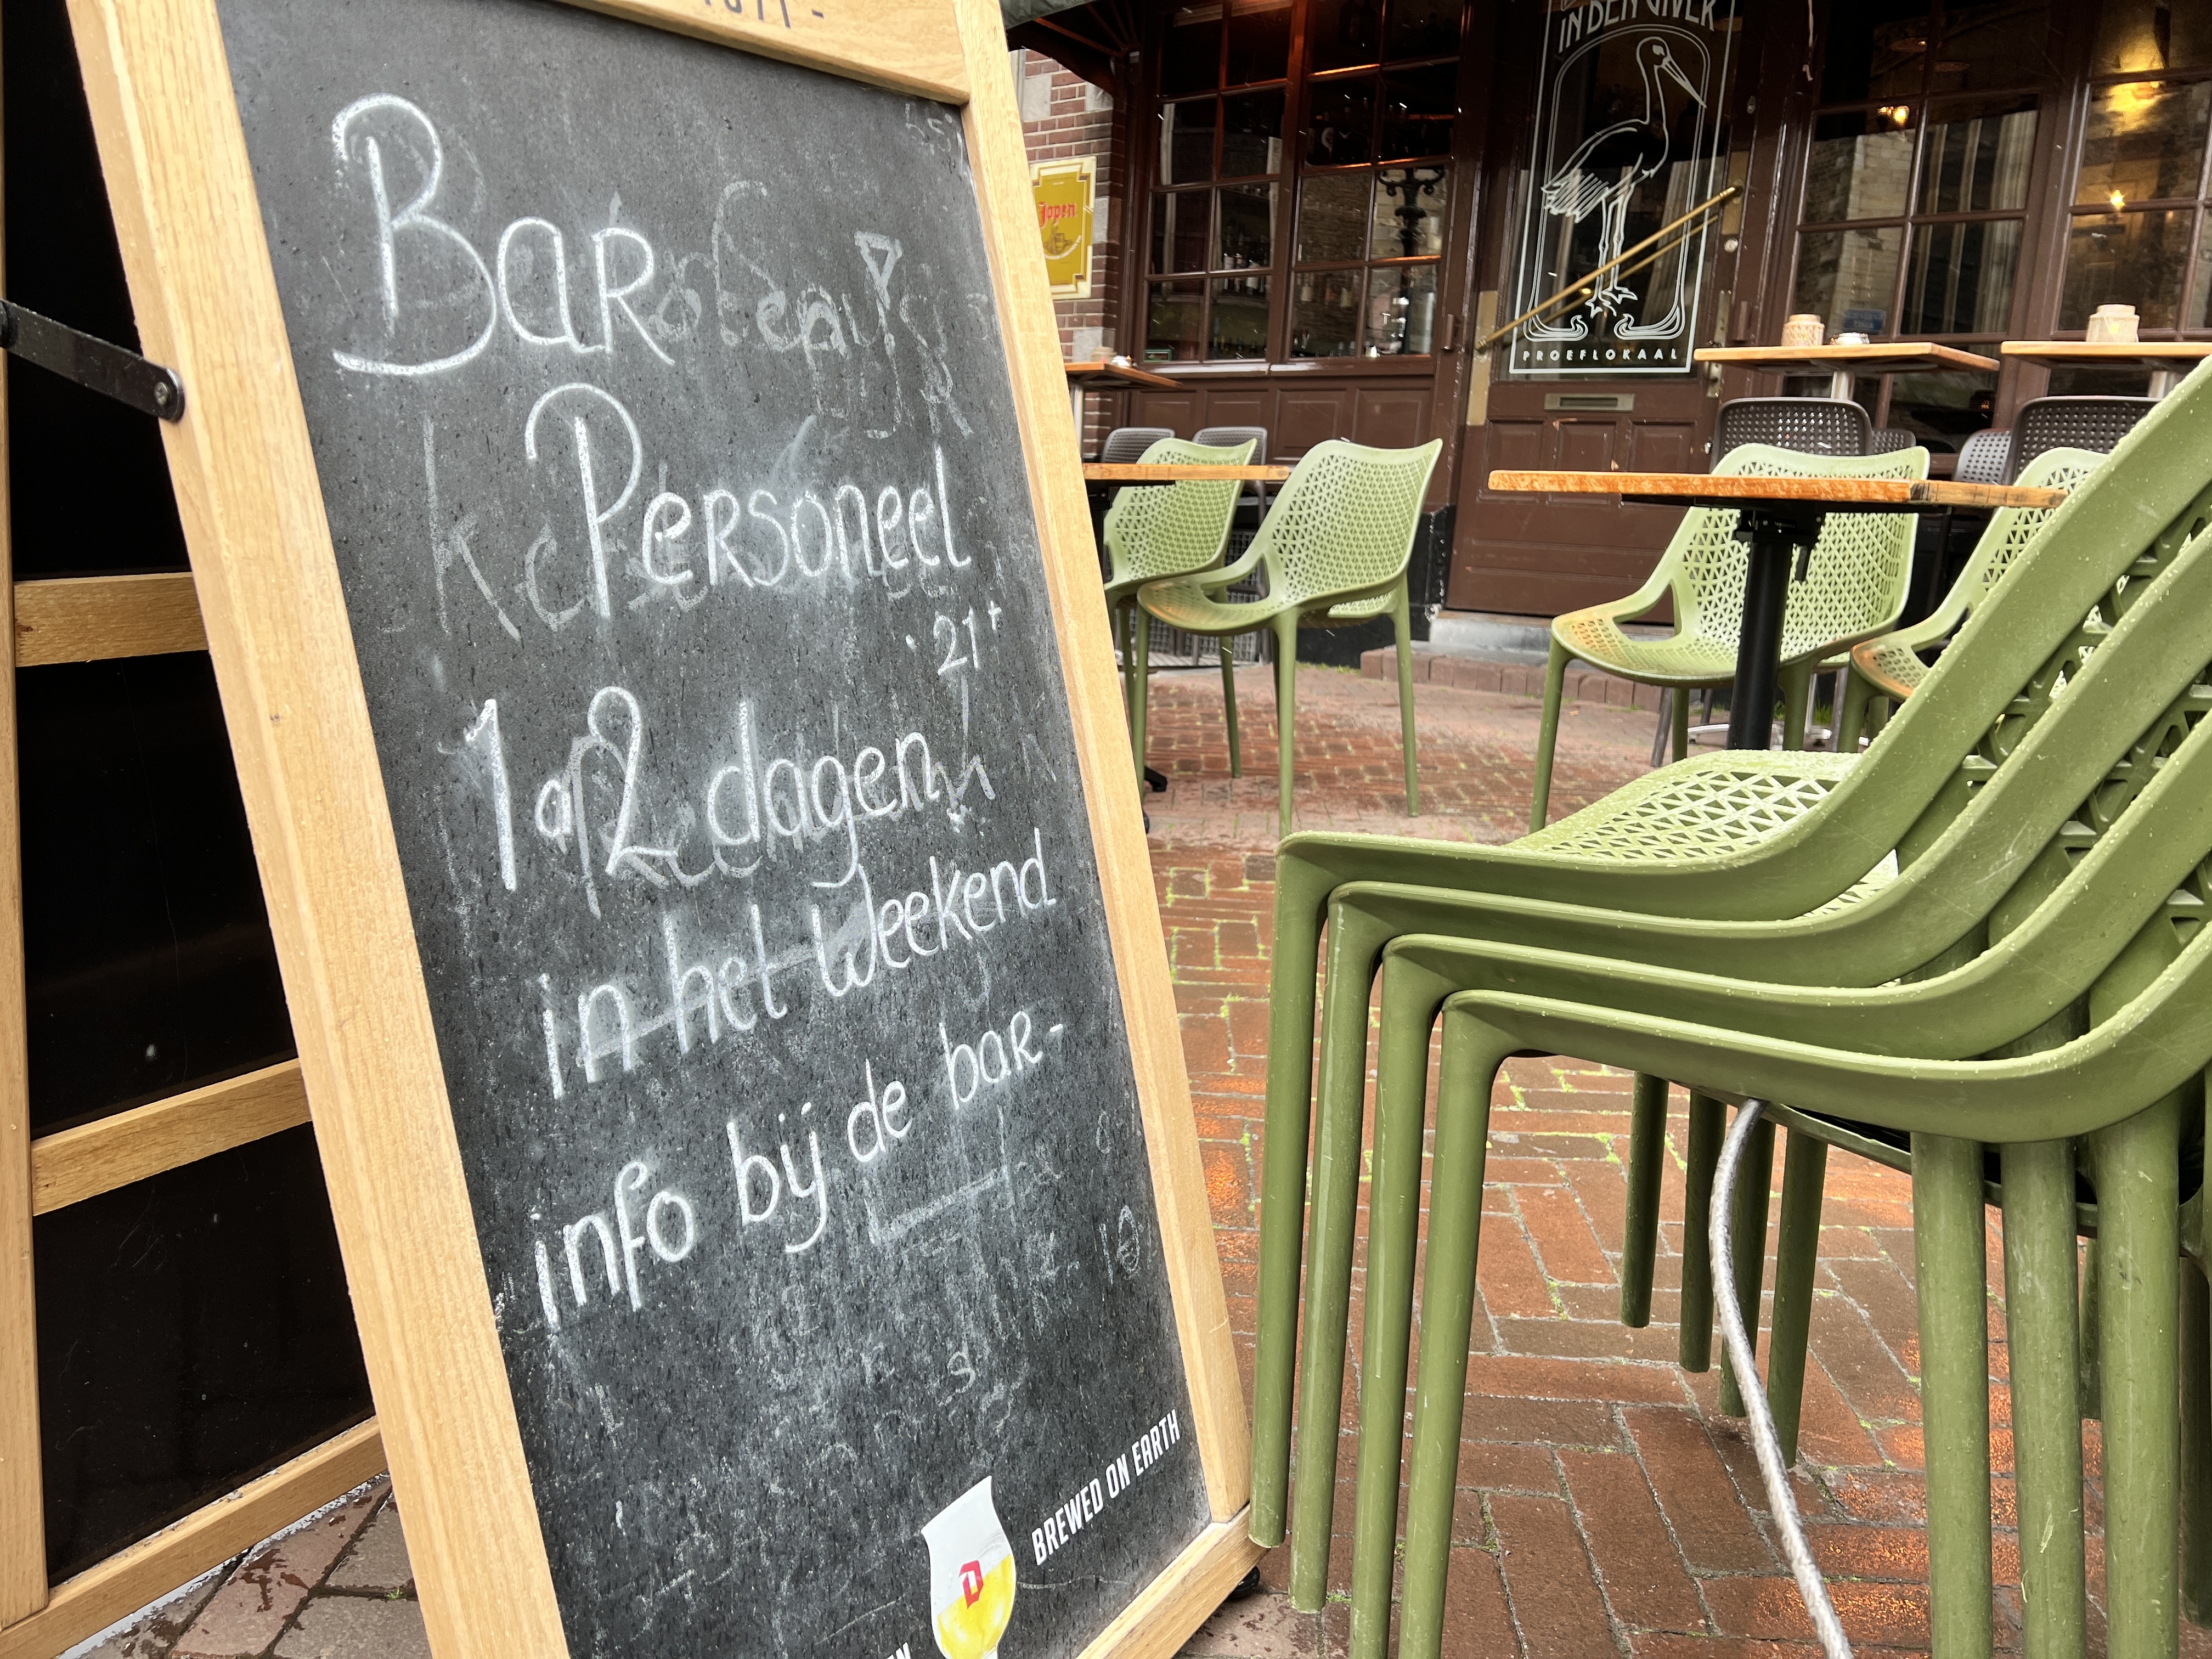 1871 -
Bar
Personeel
21+
1 a 2 dagen
in het Weekend
info bij de bar-
BREWED ON EARTH
Jopen
IN DEN UIVER
PROEFLOKAAL